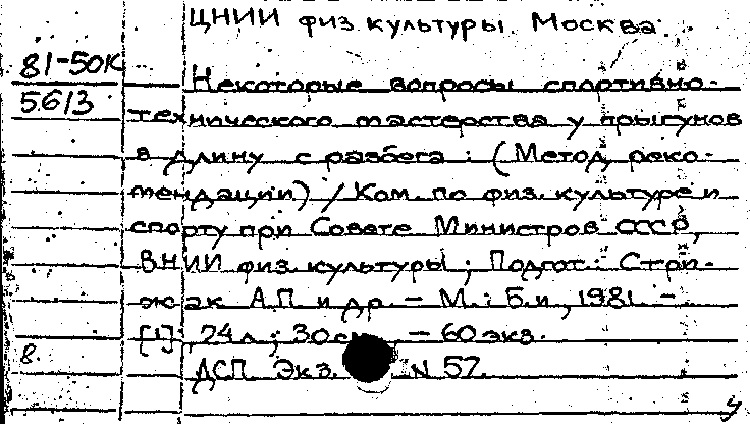 ЦНИИ физ. культуры. Москва.
81-50К
Некоторые вопросы спортивно-
5613
технического мастерства у прыгунов
в длину с разбега : (Метод. реко-
мендации) / Ком. по физ. культуре и
спорту при Совете Министров СССР,
ВНИИ физ. культуры ; Подгот.: Стри-
жак А.П. и др. – М. : Б.и., 1981. –
[1], 24 л ; 30 см. – 60 экз.
8.
ДСП. Экз. N 57.